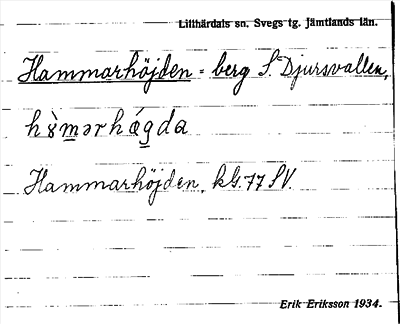 Lillhärdals sn. Svegs tg. jämtlands län.
Hammarhöjden = berg S. Djursvallen,
h ɤ̀ m̲ ə r h ǽ g̲ d a
Hammarhöjden, kbl. 77 SV.
Erik Eriksson 1934.